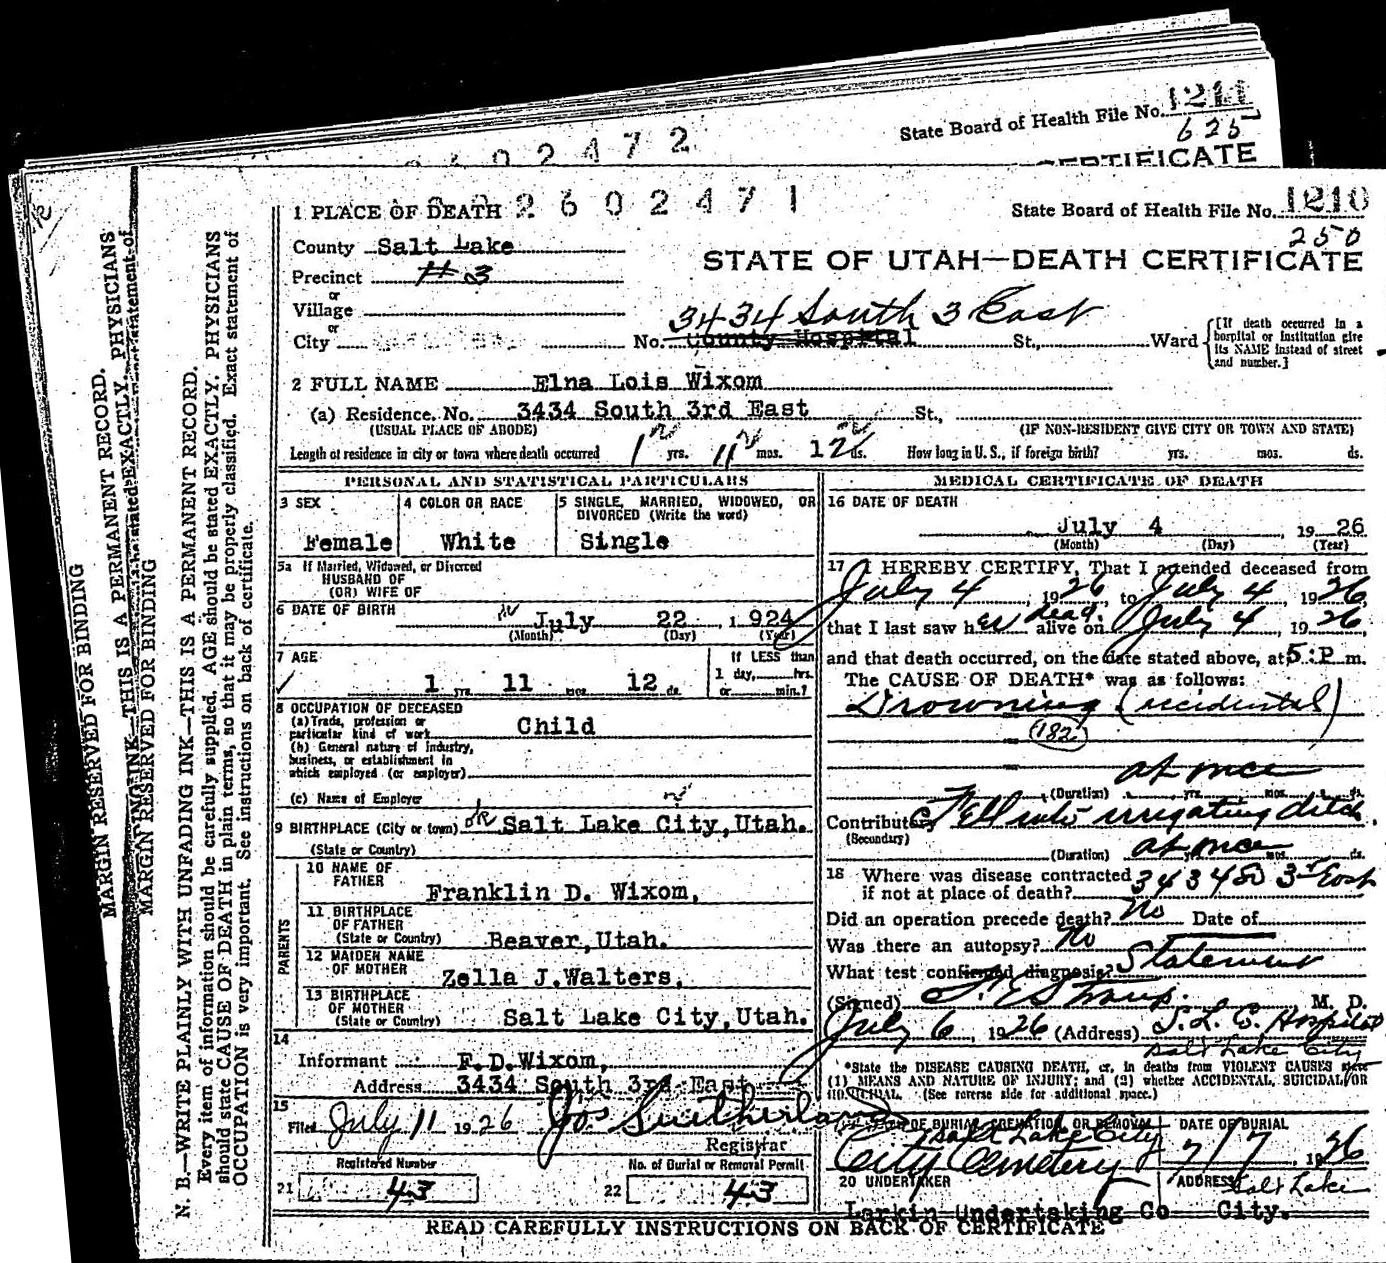 2602472
State Board of Health File No. 1211
625
CERTIFICATE
MARGIN RESERVED FOR BINDING
INK—THIS IS A PERMANENT RECORD.
stated EXACTLY. PHYSICIANS
Exact statement of
MARGIN RESERVED FOR BINDING
N. B.—WRITE PLAINLY WITH UNFADING INK—THIS IS A PERMANENT RECORD.
Every item of information should be carefully supplied. AGE should be stated EXACTLY. PHYSICIANS
should state CAUSE OF DEATH in plain terms, so that it may be properly classified. Exact statement of
OCCUPATION is very important. See instructions on back of certificate.
1 PLACE OF DEATH 2602471
State Board of Health File No. 1210
250
STATE OF UTAH—DEATH CERTIFICATE
County Salt Lake
Precinct #3
or
Village
or
City
3434 South 3 East
No. County Hospital St., Ward
[If death occurred in a hospital or institution give its NAME instead of street and number.]
2 FULL NAME Elna Lois Wixom
(a) Residence. No. 3434 South 3rd East St.,
(USUAL PLACE OF ABODE) (IF NON-RESIDENT GIVE CITY OR TOWN AND STATE)
Length of residence in city or town where death occurred 1 yrs. 11 mos. 12 ds. How long in U. S., if foreign birth? yrs. mos. ds.
PERSONAL AND STATISTICAL PARTICULARS
3 SEX
Female
4 COLOR OR RACE
White
5 SINGLE, MARRIED, WIDOWED, OR
DIVORCED (Write the word)
Single
5a If Married, Widowed, or Divorced
HUSBAND OF
(OR) WIFE OF
6 DATE OF BIRTH July 22, 1924
(Month) (Day) (Year)
7 AGE
1 yrs. 11 mos. 12 ds.
If LESS than
1 day, hrs.
or min.?
8 OCCUPATION OF DECEASED
(a) Trade, profession or
particular kind of work Child
(b) General nature of industry,
business, or establishment in
which employed (or employer)
(c) Name of Employer
9 BIRTHPLACE (City or town) Salt Lake City, Utah.
(State or Country)
PARENTS
10 NAME OF
FATHER Franklin D. Wixom,
11 BIRTHPLACE
OF FATHER
(State or Country) Beaver, Utah.
12 MAIDEN NAME
OF MOTHER Zella J. Walters.
13 BIRTHPLACE
OF MOTHER
(State or Country) Salt Lake City, Utah.
14
Informant F.D. Wixom,
Address 3434 South 3rd East
15
Filed July 11 1926 Jos Sutherland
Registrar
Registered Number
21 43
No. of Burial or Removal Permit
22 43
MEDICAL CERTIFICATE OF DEATH
16 DATE OF DEATH
July 4, 1926
(Month) (Day) (Year)
17 I HEREBY CERTIFY, That I attended deceased from
July 4, 1926, to July 4, 1926,
that I last saw her dead alive on July 4, 1926,
and that death occurred, on the date stated above, at 5:P. m.
The CAUSE OF DEATH* was as follows:
Drowning (accidental)
182
at once
(Duration) yrs. mos. ds.
Contributory Fell into irrigating ditch
(Secondary)
(Duration) at once mos. ds.
18 Where was disease contracted
if not at place of death? 3434 So 3rd East
Did an operation precede death? No Date of
Was there an autopsy? No
What test confirmed diagnosis? Statement
(Signed) M. D.
July 6, 1926 (Address) S. L. C. Hospital
Salt Lake City
*State the DISEASE CAUSING DEATH, or, in deaths from VIOLENT CAUSES state
(1) MEANS AND NATURE OF INJURY; and (2) whether ACCIDENTAL, SUICIDAL, OR
HOMICIDAL. (See reverse side for additional space.)
PLACE OF BURIAL, CREMATION, OR REMOVAL
Salt Lake City
City Cemetery
DATE OF BURIAL
7/7, 1926
20 UNDERTAKER
Larkin Undertaking Co
ADDRESS Salt Lake
City.
READ CAREFULLY INSTRUCTIONS ON BACK OF CERTIFICATE